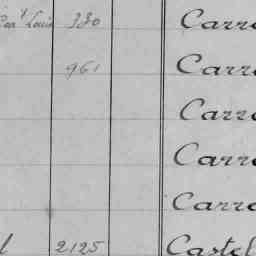 Louis 330 Carre
961 Carre
Carre
Carre
Carre
l 2125 Castel